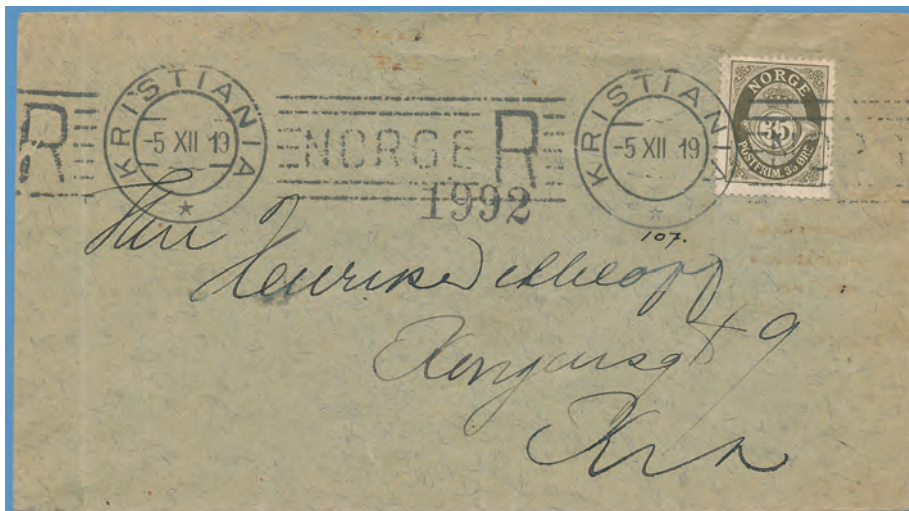 R KRISTIANIA -5 XII 19 NORGE R KRISTIANIA -5 XII 19
NORGE
35
POSTFRIM. 35 ØRE
1992
107.
Herr
Henrik
9
Kra